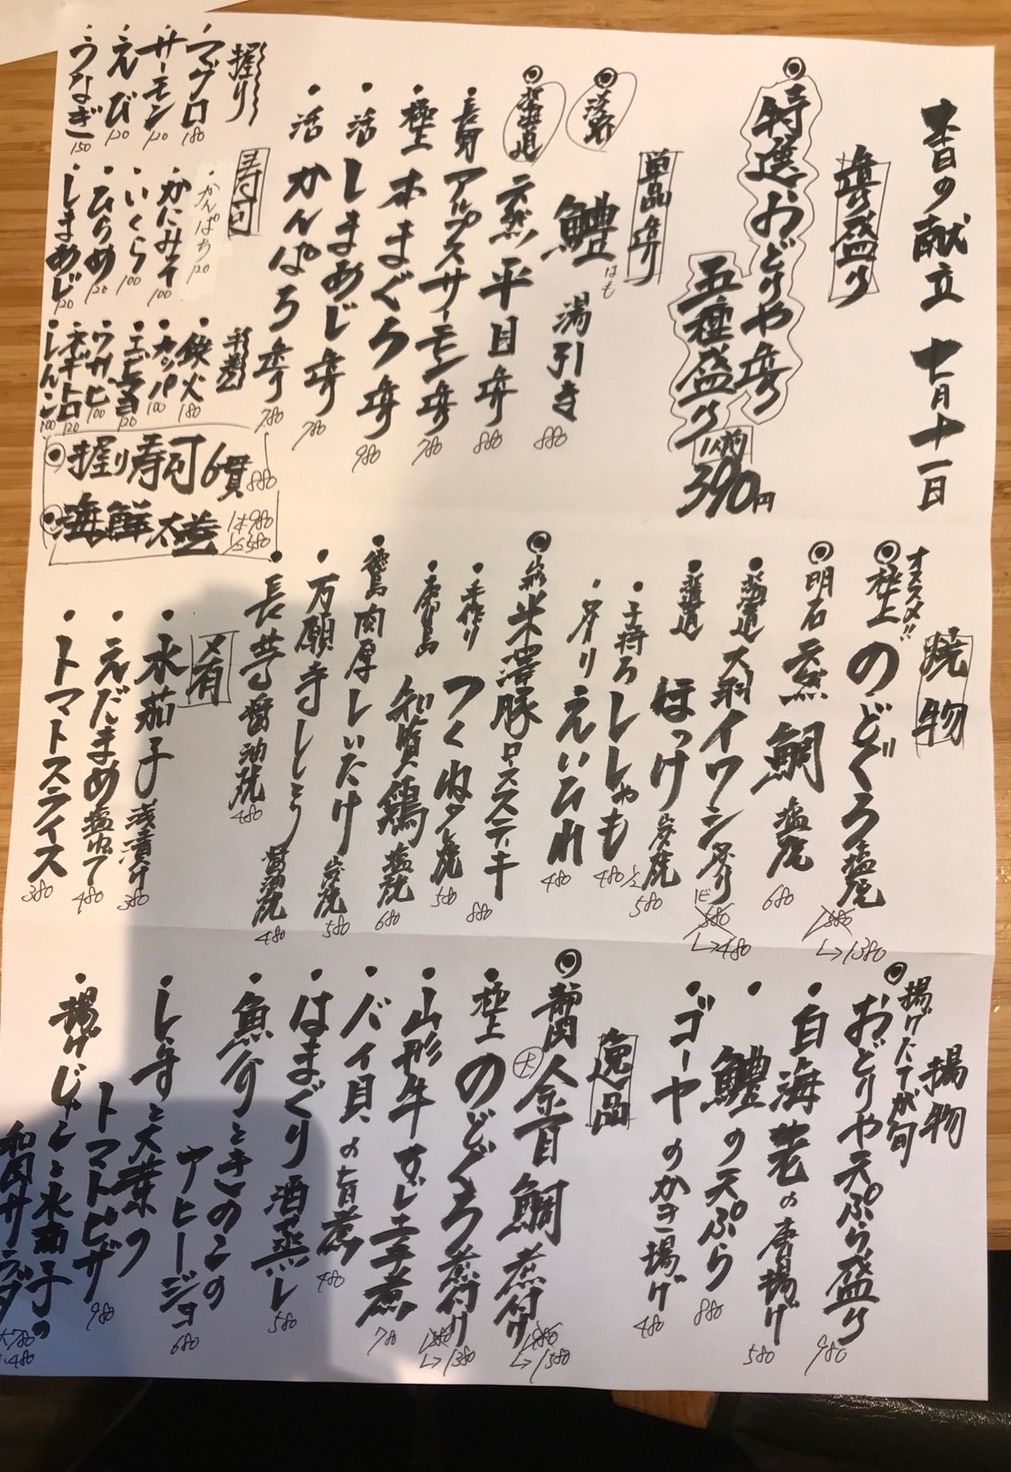 本日の献立 七月十一日
造り盛り
特選おどりや造り
五種盛り
1人前
390円
単品造り
淡路
鱧 湯引き 880
はも
北海道 天然 平目 造り 880
長野 アルプスサーモン 造り 780
極上 本まぐろ 造り 980
活 しまあじ 造り 780
活 かんぱち 造り 780
寿司
握り
マグロ 180
サーモン 120
えび 120
うなぎ 150
かんぱち 120
かにみそ 100
いくら 100
ひらめ 120
しまあじ 120
細巻
鉄火 180
カッパ 100
ネギトロ 120
しんこ 100
握り寿司 6貫 880
海鮮太巻 1本 980
1/2 580
焼物
オススメ!!
極上 のどぐろ 塩焼 1380
明石 天然 鯛 塩焼 680
北海道 大羽イワシ 炙り 480
北海道 ほっけ 炭焼 580
1/2
子持ち ししゃも 480
炙り えいひれ 480
山形 米澤豚ロースステーキ 880
手作り つくねタレ焼 580
知覧鶏 塩焼 680
徳島 肉厚 しいたけ 炭焼 580
万願寺しとう 醤油焼 480
長芋 醤油焼 480
肴
水茄子 浅漬け 380
えだまめ 塩ゆで 480
トマトスライス 380
揚物
揚げたてが旬
おどりや天ぷら盛り 980
白海老の唐揚げ 580
鱧の天ぷら 880
ゴーヤのかき揚げ 480
逸品
静岡 金目鯛 煮付け 1580
大
極上 のどぐろ 煮付け 1380
山形牛 すじ土手煮 780
バイ貝の旨煮 480
はまぐり 酒蒸し 580
魚介ときのこの
アヒージョ 680
しらすと大葉の
トマトピザ 980
揚げじゃこと水茄子の
和風サラダ 大780
480